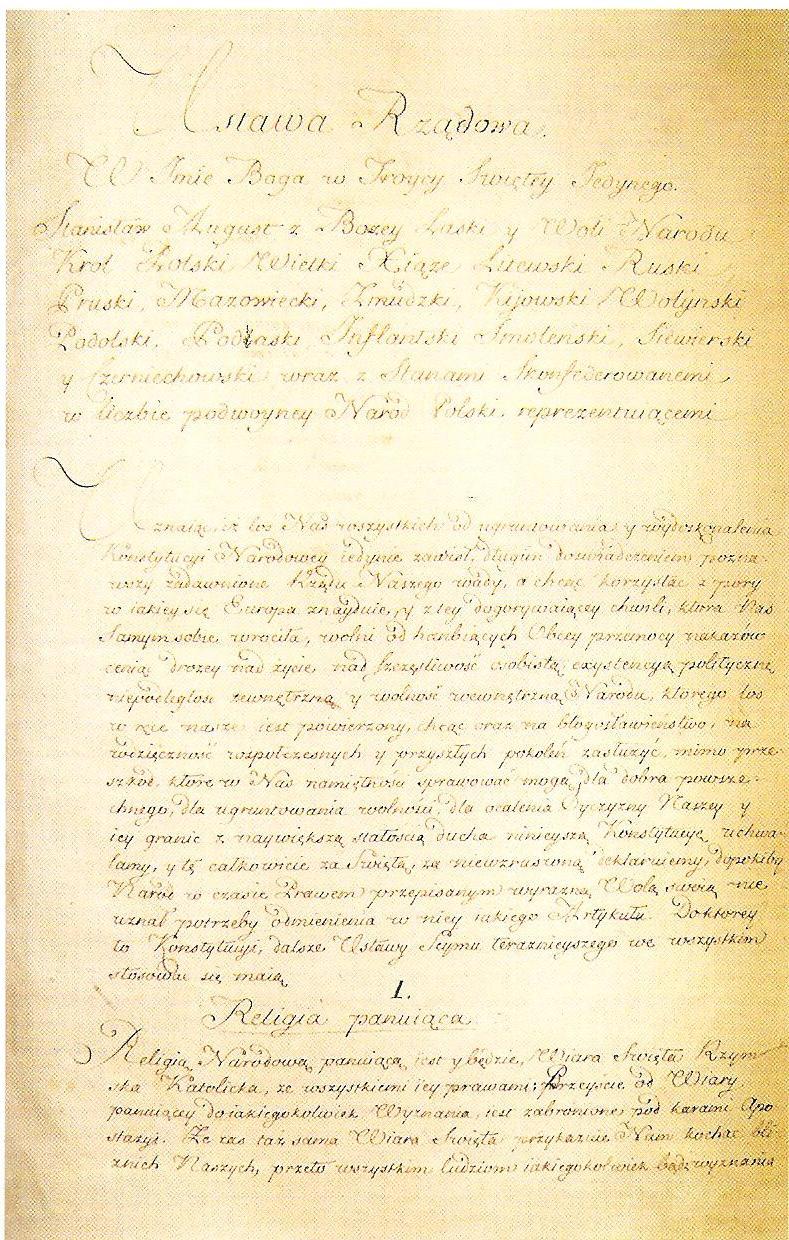 Ustawa Rządowa.
W Imie Boga w Troycy Swiętey Jedynego.
Stanisław August z Bozey Łaski y Woli Narodu
Krol Polski Wielki Xiąze Litewski Ruski
Pruski, Mazowiecki, Zmudzki, Kijowski Wołyński
Podolski, Podlaski Inflantski Smoleński, Siewierski
y Czerniechowski wraz z Stanami Skonfederowanemi
w liczbie podwoyney Naród Polski reprezentuiącemi
Uznaiąc, iż los Nas wszystkich od ugruntowania y wydoskonalenia
Konstytucyi Narodowey iedynie zawisł, długim doswiadczeniem pozna-
wszy zadawnione Rządu Naszego wady, a chcąc korzystać z pory
w iakiey się Europa znayduie, y z tey dogorywaiącey chwili, ktora Nas
Samym sobie wrociła, wolni od hanbiących Obcey przemocy nakazów
ceniąc drozey nad życie, nad szczęsliwość osobistą exystencyą polityczną
niepodległosć zewnętrzną y wolność wewnętrzną Narodu, ktorego los
w ręce nasze iest powierzony, chcąc oraz na błogosławieństwo, na
wdzięczność wspołczesnych y przyszłych pokoleń zasłużyć, mimo prze-
szkód, które w Nas namiętności sprawować mogą, dla dobra powsze-
chnego, dla ugruntowania wolności, dla ocalenia Oyczyzny Naszey y
iey granic z naywiększą stałoscią ducha ninieyszą Konstytucyę uchwa-
lamy, y tę całkowicie za Swiętą, za niewzruszoną deklaruiemy, dopókiby
Naród w czasie Prawem przepisanym wyrazną Wolą swoią nie
uznał potrzeby odmienienia w niey iakiego Artykułu. Doktorey
to Konstytucyi, dalsze Ustawy Seymu teraznieyszego we wszystkim
stósować się maią.
1.
Religia panuiąca
Religią Narodową panuiącą iest y będzie, Wiara Swięta Rzym-
ska Katolicka, ze wszystkiemi iey prawami; Przeyście od Wiary
panuiącey do iakiegokolwiek Wyznania, iest zabronione pod karami Apo
stazyi. Ze zas taż sama Wiara Swięta przykazuie Nam kochać bli-
znich Naszych, przeto wszystkim ludziom iakiegokolwiek bądź wyznania